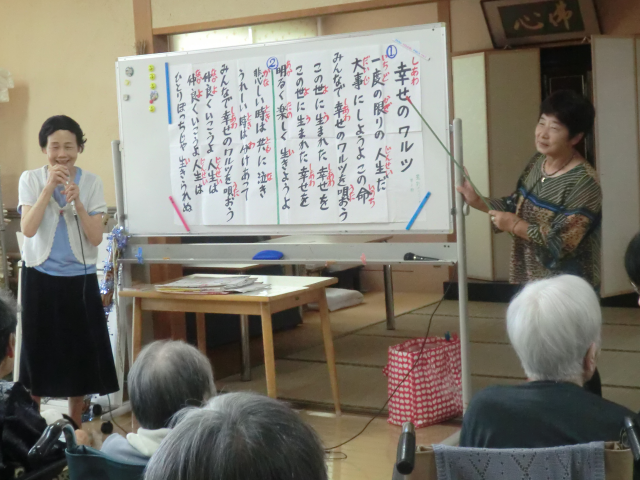 佛心
幸せのワルツ
①
一度の限りの人生だ
大事にしようよこの命
みんなで幸せのワルツを唄おう
この世に生まれた幸せを
この世に生まれた幸せを
②
明るく楽しく生きようよ
悲しい時は共に泣き
うれしい時は分けあって
みんなで幸せのワルツを唄おう
仲良くいこうよ人生は
仲良くいこうよ人生は
ひとりぼっちじゃ生きられぬ